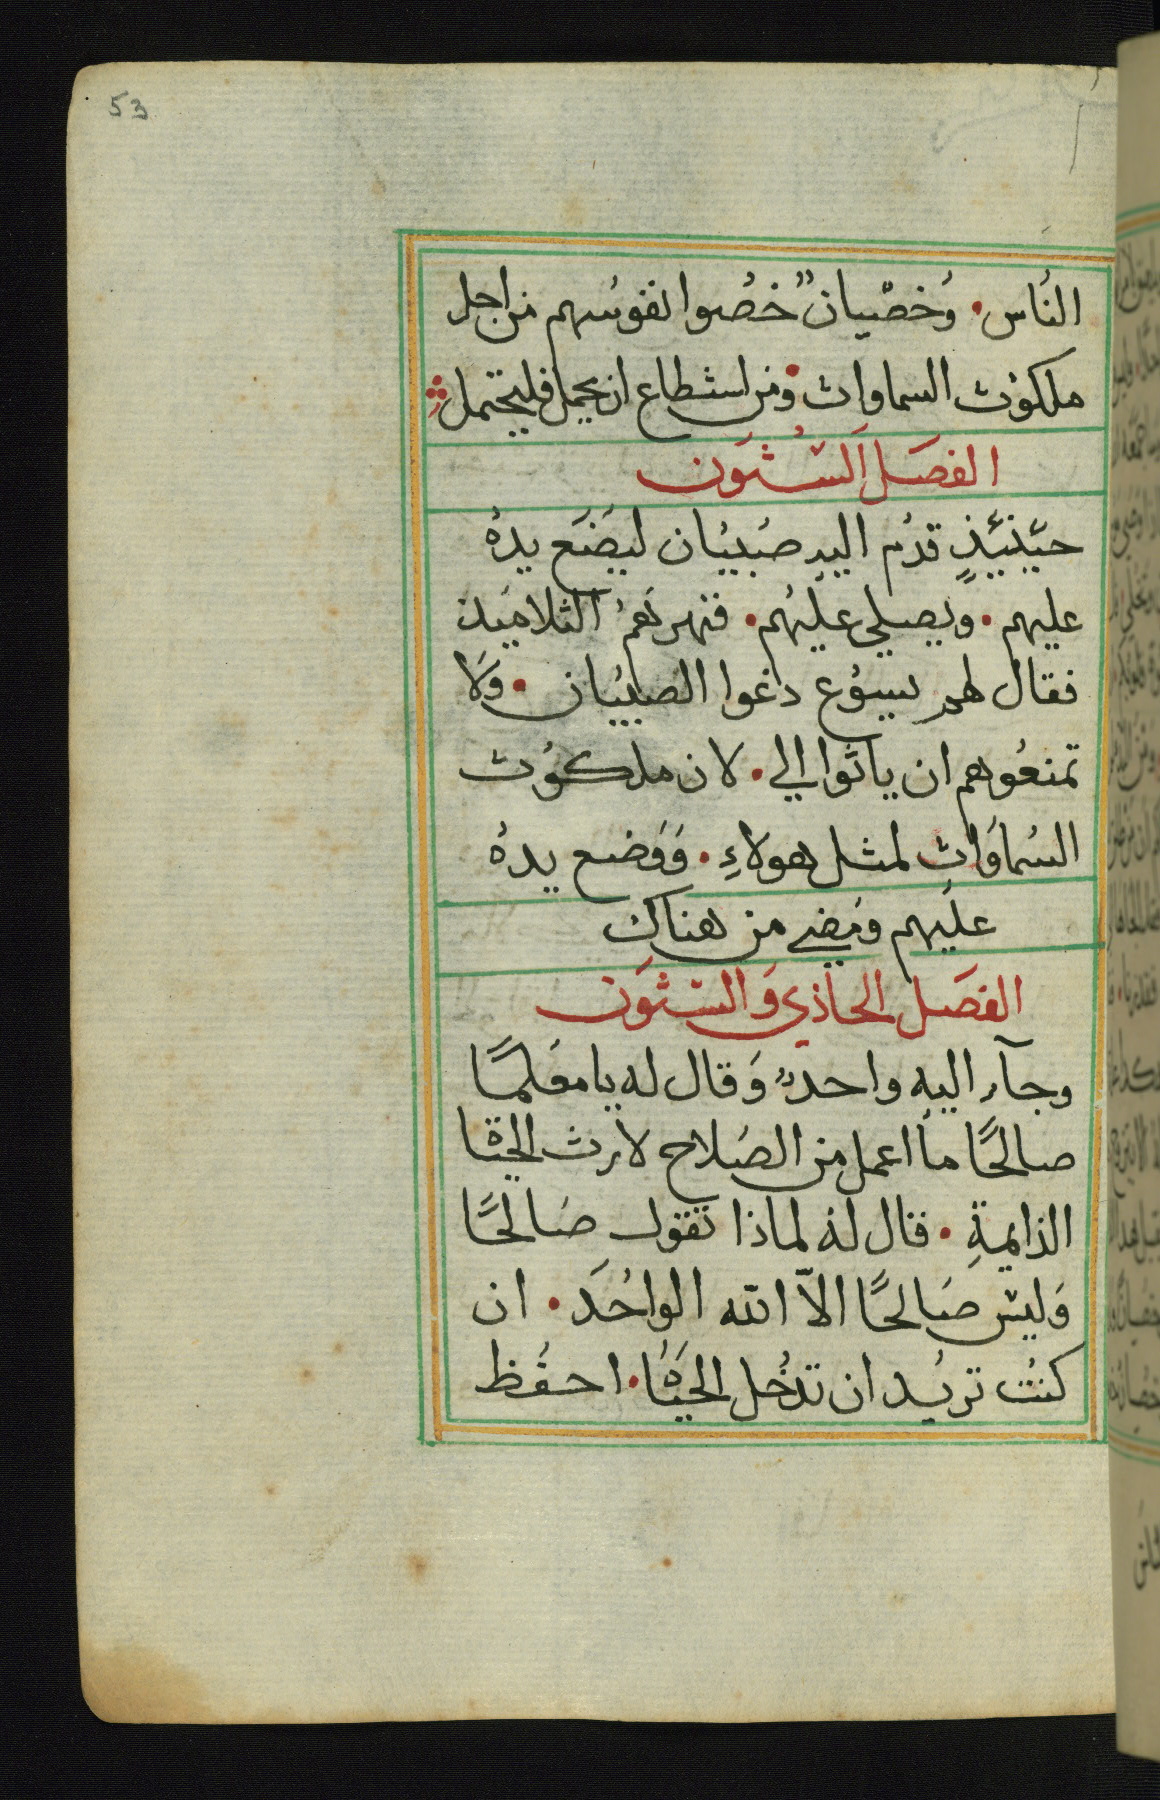 53
الناس. وخصيان خصوا نفوسهم من اجل
ملكوث السماواث. ومن اسثطاع ان يحمل فليحتمل
الفصل السثون
حينيئذ قدم اليه صبيان ليضع يده
عليهم. ويصلي عليهم. فنهرهم الثلاميذ
فقال لهم يسوع داغوا الصبيان. ولا
تمنعوهم ان ياثوا الي. لان ملكوث
السماواث لمثل هولاء. ووضع يده
عليهم ومضي من هناك
الفصل الحاذي والسثون
وجآء اليه واحد وقال له يا معلمًا
صالحًا ما اعمل من الصلاح لارث الحيّا
الذايمة. قال له لماذا تقول صالحًا
وليس صالحًا الاّ الله الواحد. ان
كنت تريد ان تدخل الحياة. احفظ